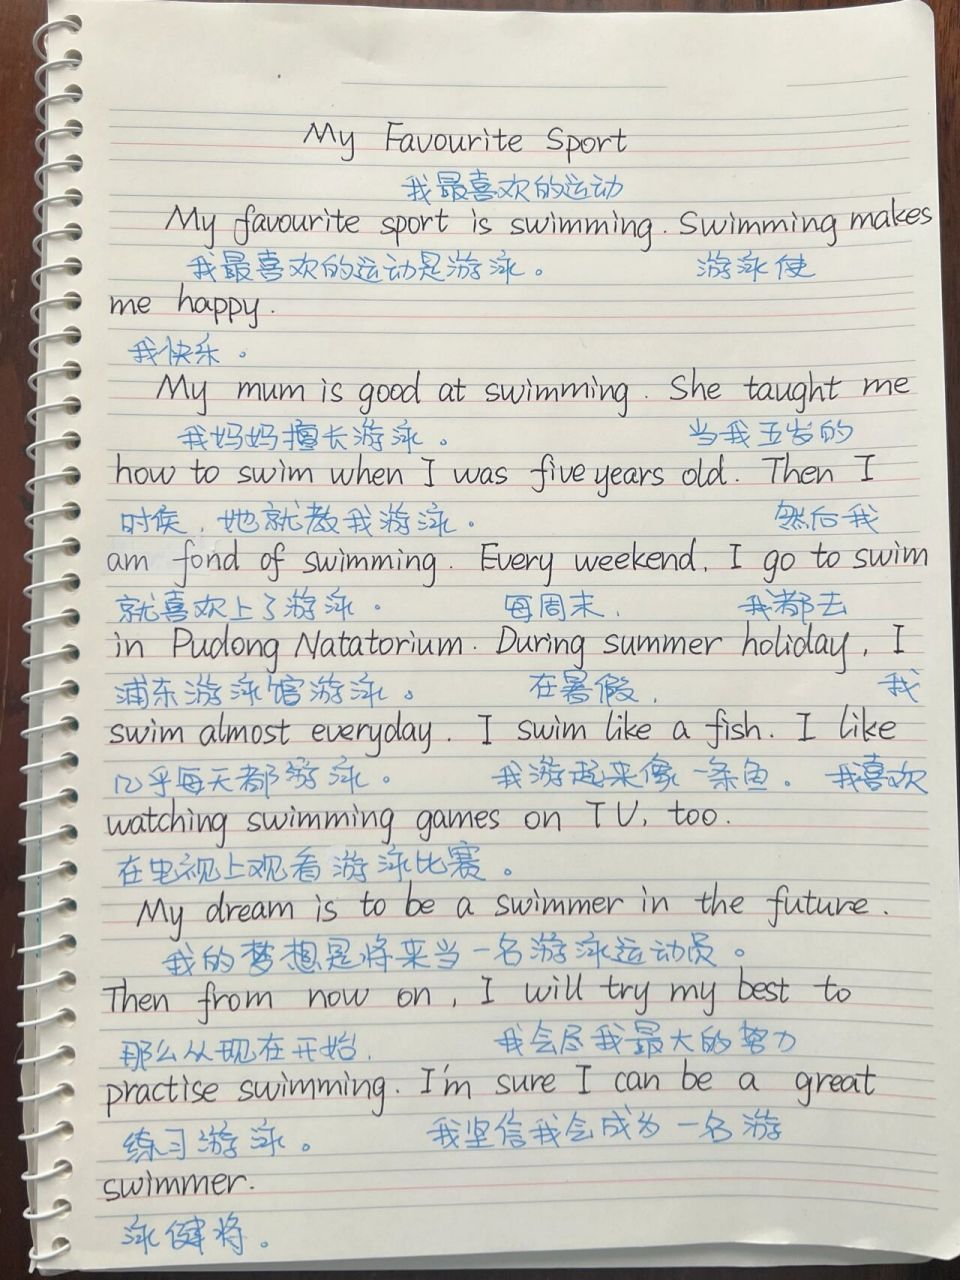 My Favourite Sport
我最喜欢的运动
My favourite sport is swimming. Swimming makes
我最喜欢的运动是游泳。 游泳使
me happy.
我快乐。
My mum is good at swimming. She taught me
我妈妈擅长游泳。 当我五岁的
how to swim when I was five years old. Then I
时候,她就教我游泳。 然后我
am fond of swimming. Every weekend, I go to swim
就喜欢上了游泳。 每周末, 我都去
in Pudong Natatorium. During summer holiday, I
浦东游泳馆游泳。 在暑假, 我
swim almost everyday. I swim like a fish. I like
几乎每天都游泳。 我游起来像一条鱼。 我喜欢
watching swimming games on TV, too.
在电视上观看游泳比赛。
My dream is to be a swimmer in the future.
我的梦想是将来当一名游泳运动员。
Then from now on, I will try my best to
那么从现在开始, 我会尽我最大的努力
practise swimming. I'm sure I can be a great
练习游泳。 我坚信我会成为一名游
swimmer.
泳健将。